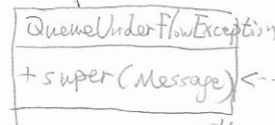 QueueUnderFlowException
+ super(Message)